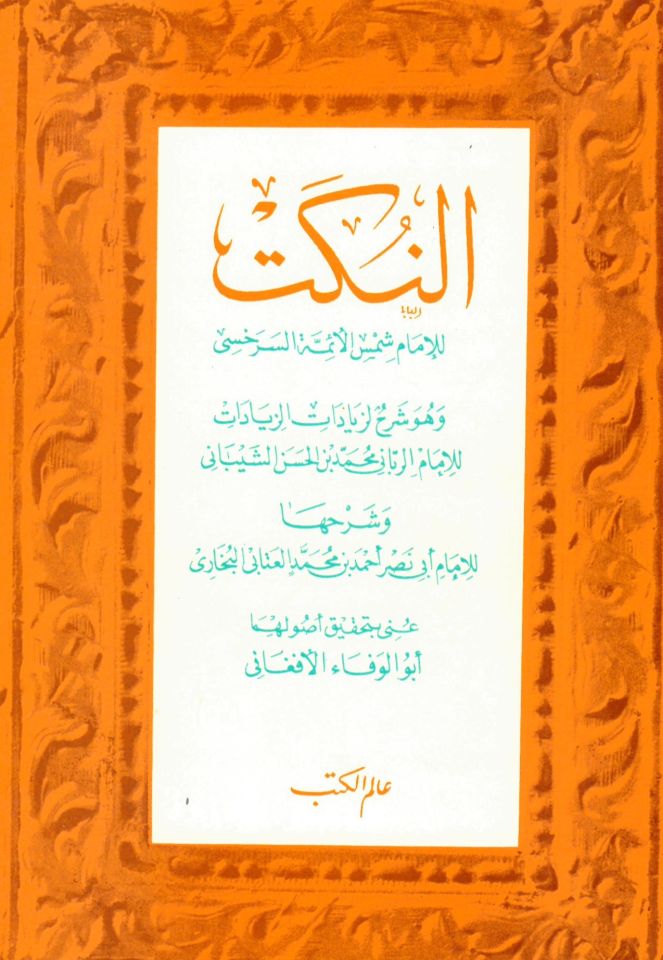 النُكَت
للإمَام شمْس الأئِمَّة السَرَخسِى
وَهُوَ شَرحُ لزيَادَات الزيَادَات
للإمَام الربّانى محُمَّد بْن الحسَن الشَيبَانى
وَشَرْحهَا
للإمَامِ أبى نَصْر أحمَد بن محُمَّد العتابى البُخَارى
عُنى بتحقيق أصُولهَا
أبوُ الوَفَاء الأفغَانى
عالم الكتب